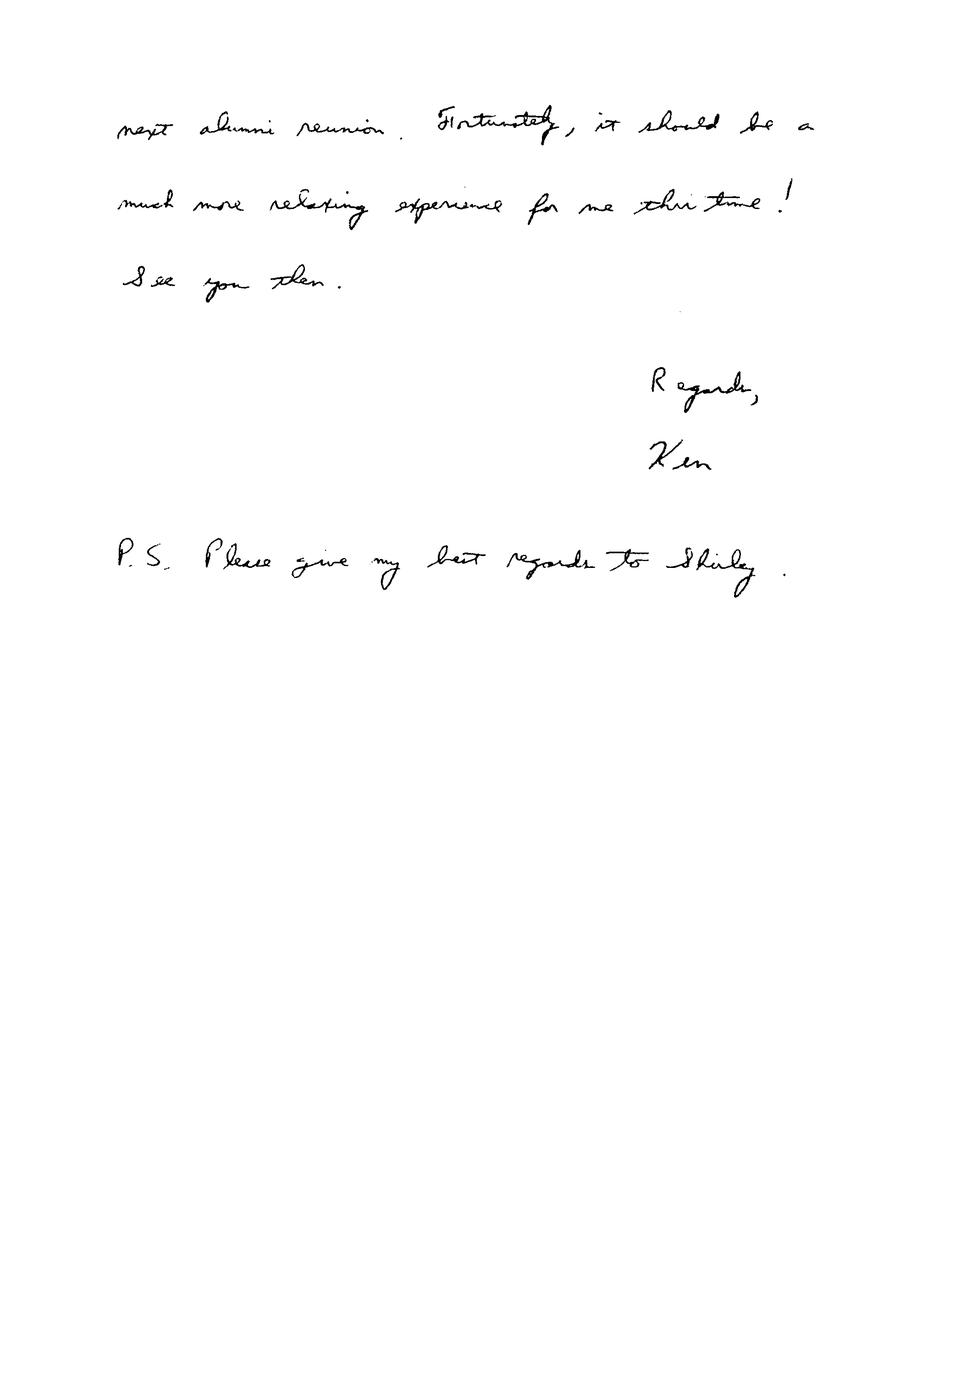 next alumni reunion. Fortunately, it should be a
much more relaxing experience for me this time!
See you then.
Regards,
Ken
P.S. Please give my best regards to Shirley.